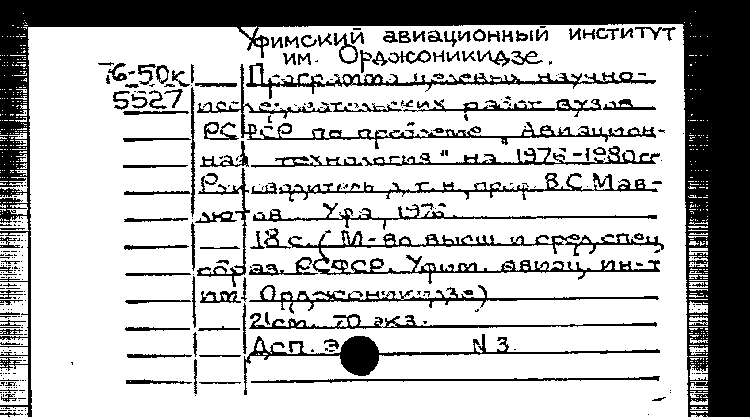 Уфимский авиационный институт
им. Орджоникидзе.
76-50к Программа целевых научно-
5527 исследовательских работ вузов
РСФСР по проблеме "Авиацион-
ная технология" на 1976-1980гг
Руководитель д.т.н, проф. В.С. Мав-
лютов. Уфа, 1976.
18 с. (М-во высш. и сред. спец.
образ. РСФСР. Уфим. авиац. ин-т
им. Орджоникидзе)
21см. 70 экз.
Дсп. Э N 3.